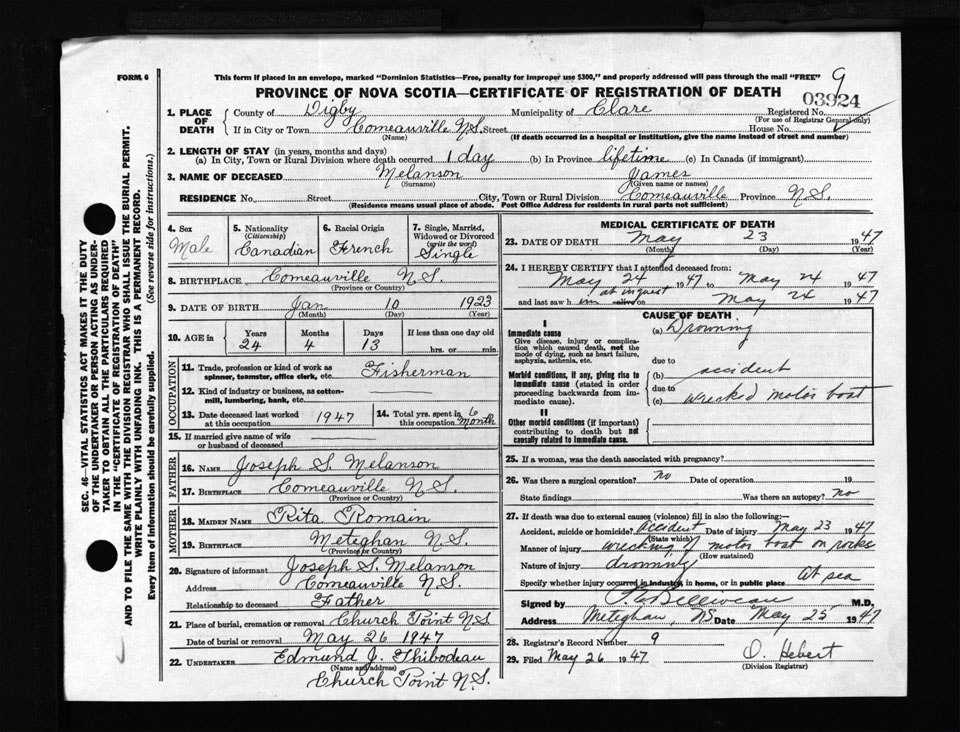 FORM 6
This form if placed in an envelope, marked "Dominion Statistics—Free, penalty for improper use $300," and properly addressed will pass through the mail "FREE"
9
PROVINCE OF NOVA SCOTIA—CERTIFICATE OF REGISTRATION OF DEATH
03924
1. PLACE OF DEATH
County of Digby Municipality of Clare Registered No.
(For use of Registrar General only)
If in City or Town Comeauville N.S. Street House No.
(Name) (If death occurred in a hospital or institution, give the name instead of street and number)
2. LENGTH OF STAY (in years, months and days)
(a) In City, Town or Rural Division where death occurred 1 day (b) In Province lifetime (c) In Canada (if immigrant)
3. NAME OF DECEASED Melanson James
(Surname) (Given name or names)
RESIDENCE No. Street City, Town or Rural Division Comeauville Province N.S.
(Residence means usual place of abode. Post Office Address for residents in rural parts not sufficient)
4. Sex Male
5. Nationality (Citizenship) Canadian
6. Racial Origin French
7. Single, Married, Widowed or Divorced (write the word) Single
8. BIRTHPLACE Comeauville N.S.
(Province or Country)
9. DATE OF BIRTH Jan 10 1923
(Month) (Day) (Year)
10. AGE in Years Months Days If less than one day old
24 4 13 hrs. or min.
OCCUPATION
11. Trade, profession or kind of work as spinner, teamster, office clerk, etc. Fisherman
12. Kind of industry or business, as cotton-mill, lumbering, bank, etc.
13. Date deceased last worked at this occupation 1947
14. Total yrs. spent in this occupation 6 Month
15. If married give name of wife or husband of deceased
FATHER
16. NAME Joseph S. Melanson
17. BIRTHPLACE Comeauville N.S.
(Province or Country)
MOTHER
18. MAIDEN NAME Rita Romain
19. BIRTHPLACE Meteghan N.S.
(Province or Country)
20. Signature of informant Joseph S. Melanson
Address Comeauville N.S.
Relationship to deceased Father
21. Place of burial, cremation or removal Church Point N.S
Date of burial or removal May 26 1947
22. UNDERTAKER Edmund J. Thibodeau
(Name and address)
Church Point N.S.
MEDICAL CERTIFICATE OF DEATH
23. DATE OF DEATH May 23 1947
(Month) (Day) (Year)
24. I HEREBY CERTIFY that I attended deceased from:
May 24 1947 to May 24 1947
at inquest
and last saw him alive on May 24 1947
CAUSE OF DEATH
I
Immediate cause
Give disease, injury or complication which caused death, not the mode of dying, such as heart failure, asphyxia, asthenia, etc.
(a) Drowning
due to
Morbid conditions, if any, giving rise to immediate cause (stated in order proceeding backwards from immediate cause).
(b) accident
due to
(c) wrecked motor boat
II
Other morbid conditions (if important) contributing to death but not causally related to immediate cause.
25. If a woman, was the death associated with pregnancy?
26. Was there a surgical operation? no Date of operation 19
State findings Was there an autopsy? no
27. If death was due to external causes (violence) fill in also the following:—
Accident, suicide or homicide? Accident Date of injury May 23 1947
(State which)
Manner of injury wrecking of motor boat on rocks
(How sustained)
Nature of injury drowning
Specify whether injury occurred in industry, in home, or in public place At sea
Signed by M.D.
Address Meteghan, NS Date May 25 1947
28. Registrar's Record Number 9
29. Filed May 26 1947 O. Hebert
(Division Registrar)
SEC. 46—VITAL STATISTICS ACT MAKES IT THE DUTY
OF THE UNDERTAKER OR PERSON ACTING AS UNDER-
TAKER TO OBTAIN ALL THE PARTICULARS REQUIRED
IN THE "CERTIFICATE OF REGISTRATION OF DEATH"
AND TO FILE THE SAME WITH THE DIVISION REGISTRAR WHO SHALL ISSUE THE BURIAL PERMIT.
WRITE PLAINLY WITH UNFADING INK. THIS IS A PERMANENT RECORD.
Every item of information should be carefully supplied. (See reverse side for instructions.)